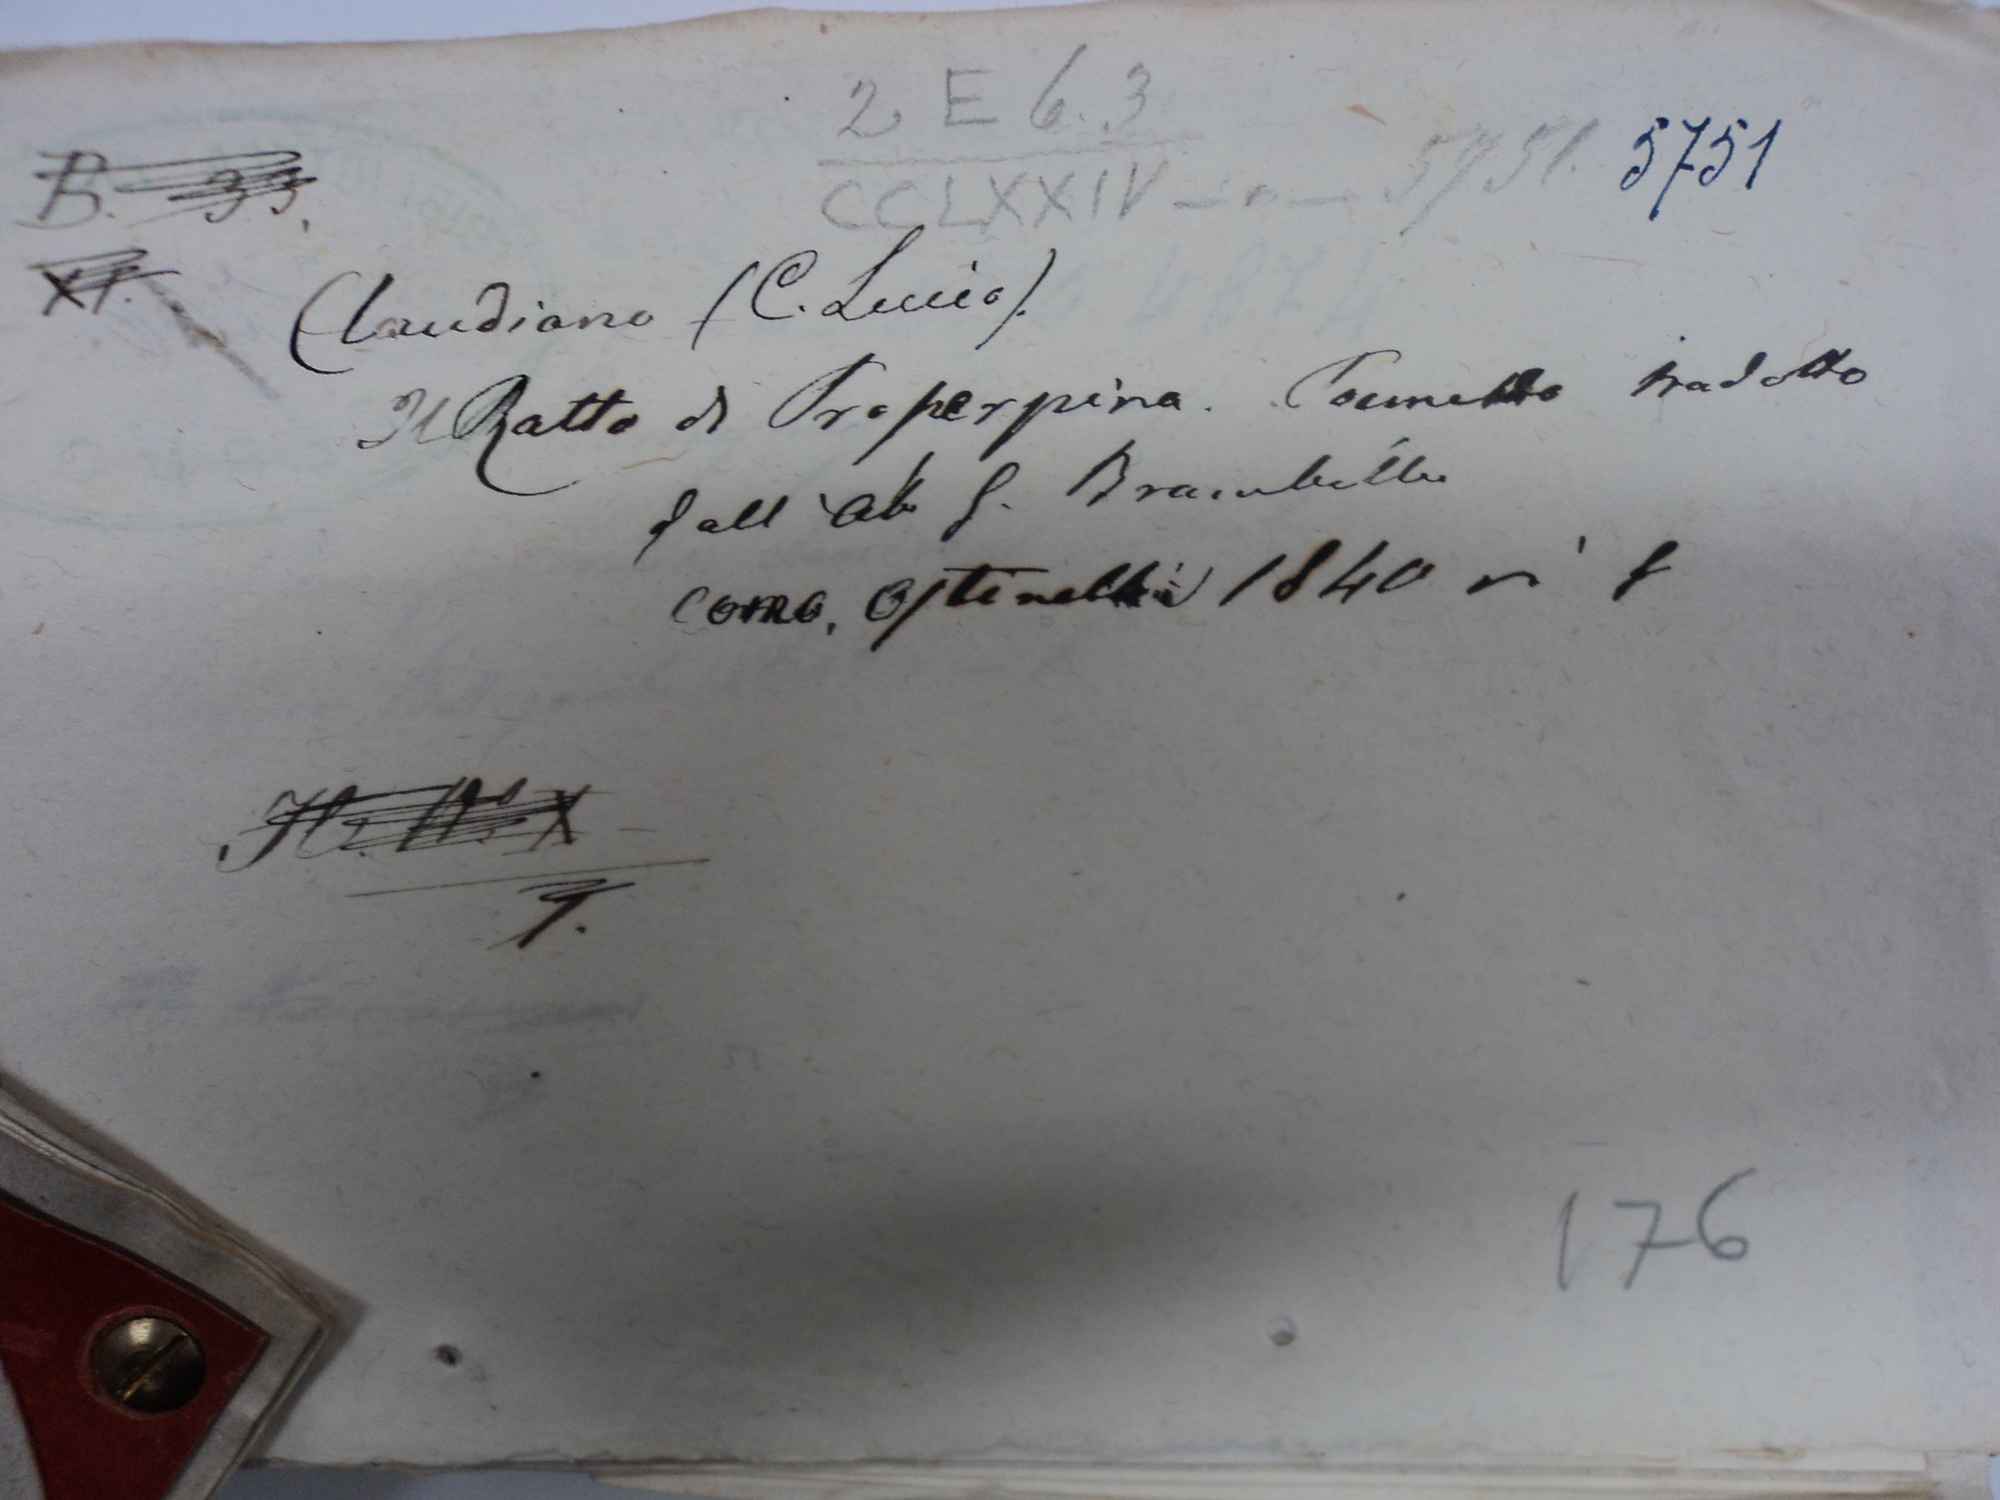 2 E 6. 3
CCLXXIV 5751. 5751
B. 33.
XI.
Claudiano (C. Lucio).
Il Ratto di Properpina. Poemetto tradotto
dall'Ab G. Brambilla
Como, Ostinelli 1840 in 8
7.
176